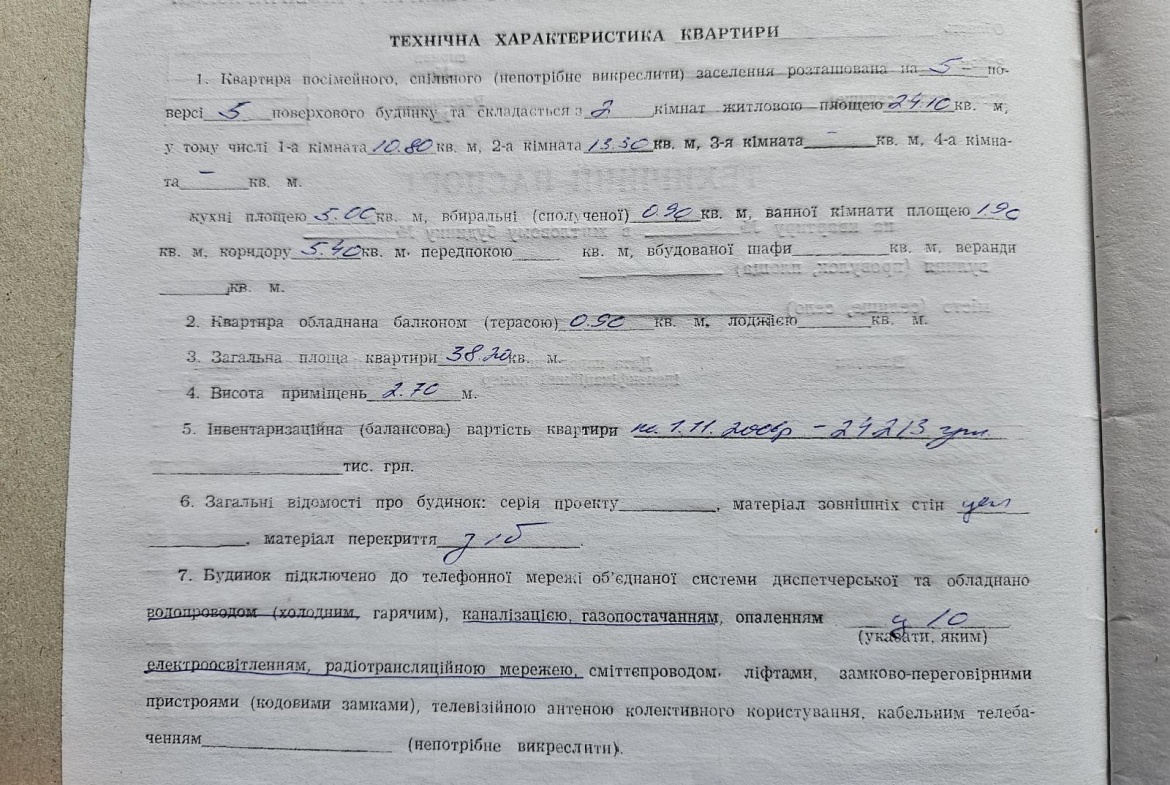 ТЕХНІЧНА ХАРАКТЕРИСТИКА КВАРТИРИ
1. Квартира посімейного, спільного (непотрібне викреслити) заселення розташована на 5 – по-
версі 5 поверхового будинку та складається з 2 кімнат житловою площею 24.10 кв. м,
у тому числі 1-а кімната 10.80 кв. м, 2-а кімната 13.30 кв. м, 3-я кімната – кв. м, 4-а кімна-
та – кв. м.
кухні площею 5.00 кв. м, вбиральні (сполученої) 0.90 кв. м, ванної кімнати площею 1.90
кв. м, коридору 5.40 кв. м. передпокою кв. м, вбудованої шафи кв. м, веранди
кв. м.
2. Квартира обладнана балконом (терасою) 0.90 кв. м, лоджією кв. м.
3. Загальна площа квартири 38.20 кв. м.
4. Висота приміщень 2.70 м.
5. Інвентаризаційна (балансова) вартість квартири 1.11. – 24213 грн
тис. грн.
6. Загальні відомості про будинок: серія проекту , матеріал зовнішніх стін цегл
, матеріал перекриття з/б .
7. Будинок підключено до телефонної мережі об'єднаної системи диспетчерської та обладнано
водопроводом (холодним, гарячим), каналізацією, газопостачанням, опаленням
(указати, яким)
електроосвітленням, радіотрансляційною мережею, сміттєпроводом, ліфтами, замково-переговірними
пристроями (кодовими замками), телевізійною антеною колективного користування, кабельним телеба-
ченням (непотрібне викреслити).